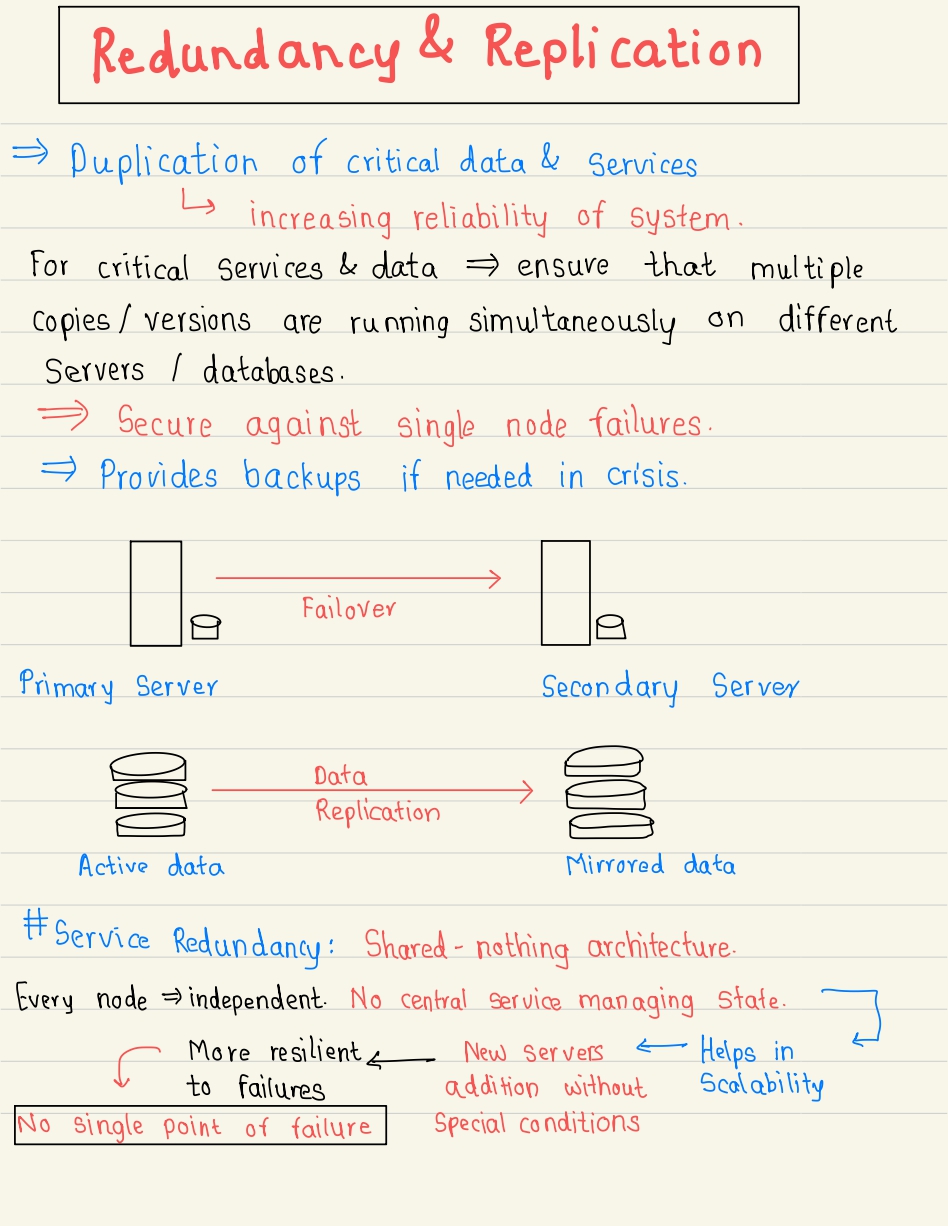 Redundancy & Replication
⇒ Duplication of critical data & services
↳ increasing reliability of system.
For critical services & data ⇒ ensure that multiple
copies / versions are running simultaneously on different
Servers / databases.
⇒ Secure against single node failures.
⇒ Provides backups if needed in crisis.
Failover
Primary Server
Secondary Server
Data
Replication
Active data
Mirrored data
# Service Redundancy: Shared-nothing architecture.
Every node ⇒ independent. No central service managing state.
More resilient
to failures
New servers
addition without
Special conditions
Helps in
Scalability
No single point of failure